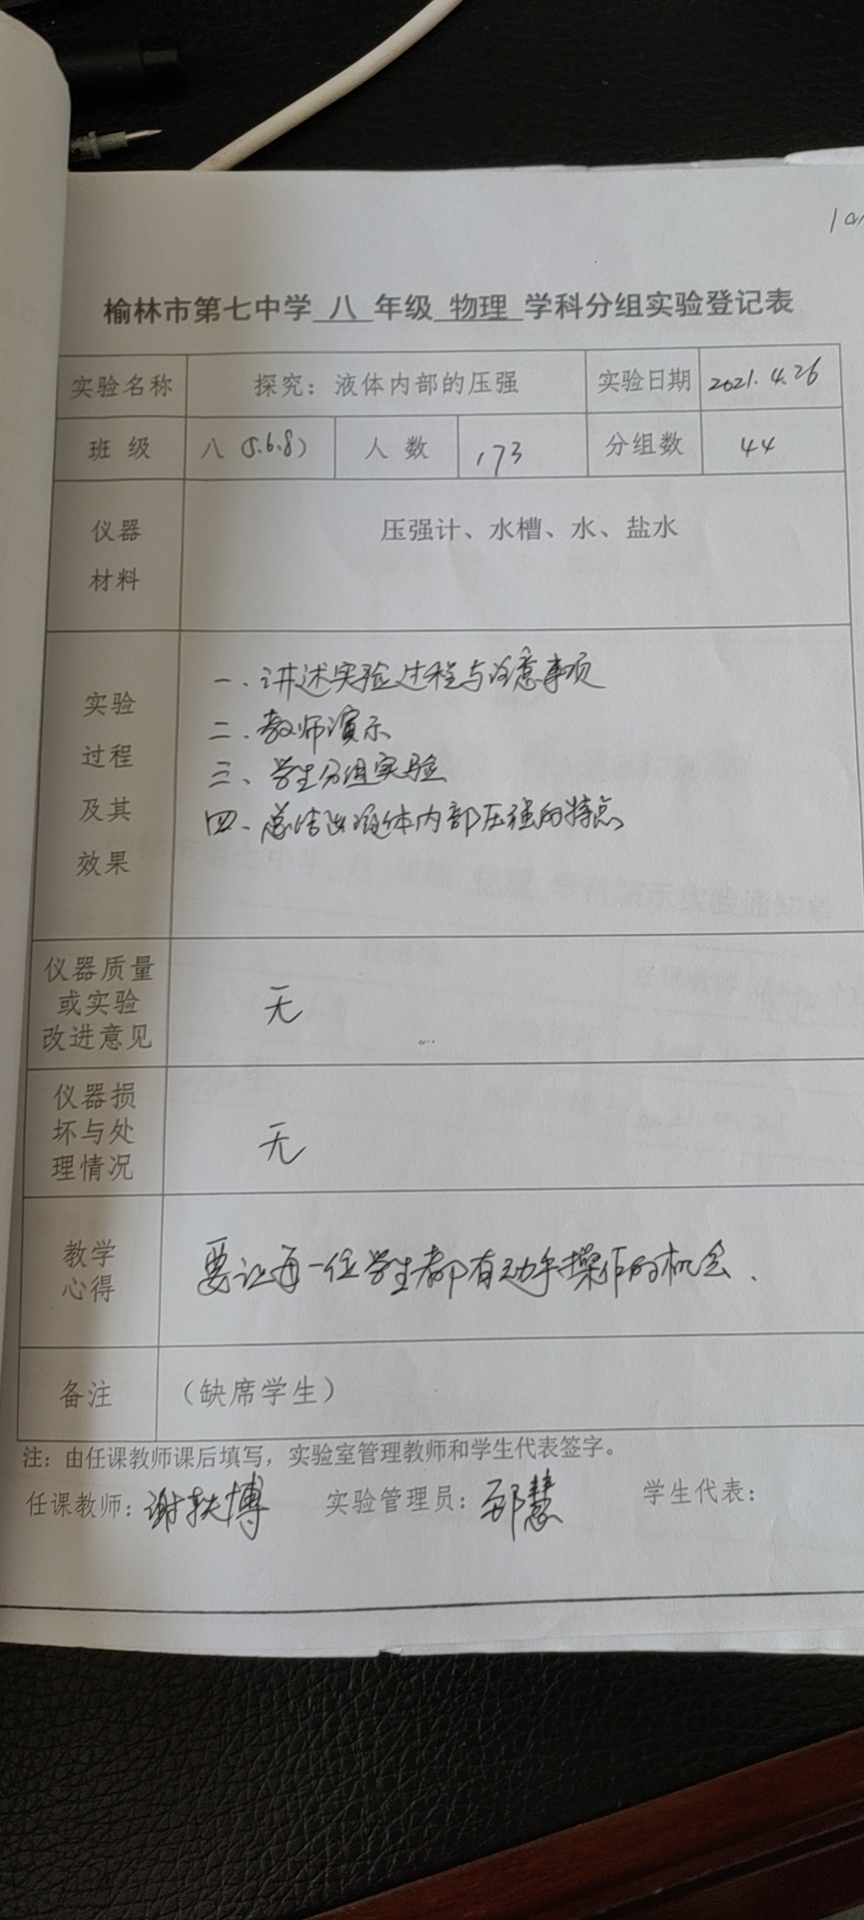 榆林市第七中学 八 年级 物理 学科分组实验登记表
实验名称 探究：液体内部的压强 实验日期 2021.4.26
班 级 八（5.6.8） 人 数 173 分组数 44
仪器
材料
压强计、水槽、水、盐水
实验
过程
及其
效果
一.讲述实验过程与注意事项
二.教师演示
三、学生分组实验
四、总结出液体内部压强的特点
仪器质量
或实验
改进意见
无
仪器损
坏与处
理情况
无
教学
心得
要让每一位学生都有动手操作的机会.
备注 （缺席学生）
注：由任课教师课后填写，实验室管理教师和学生代表签字。
任课教师：谢 博 实验管理员： 慧 学生代表：